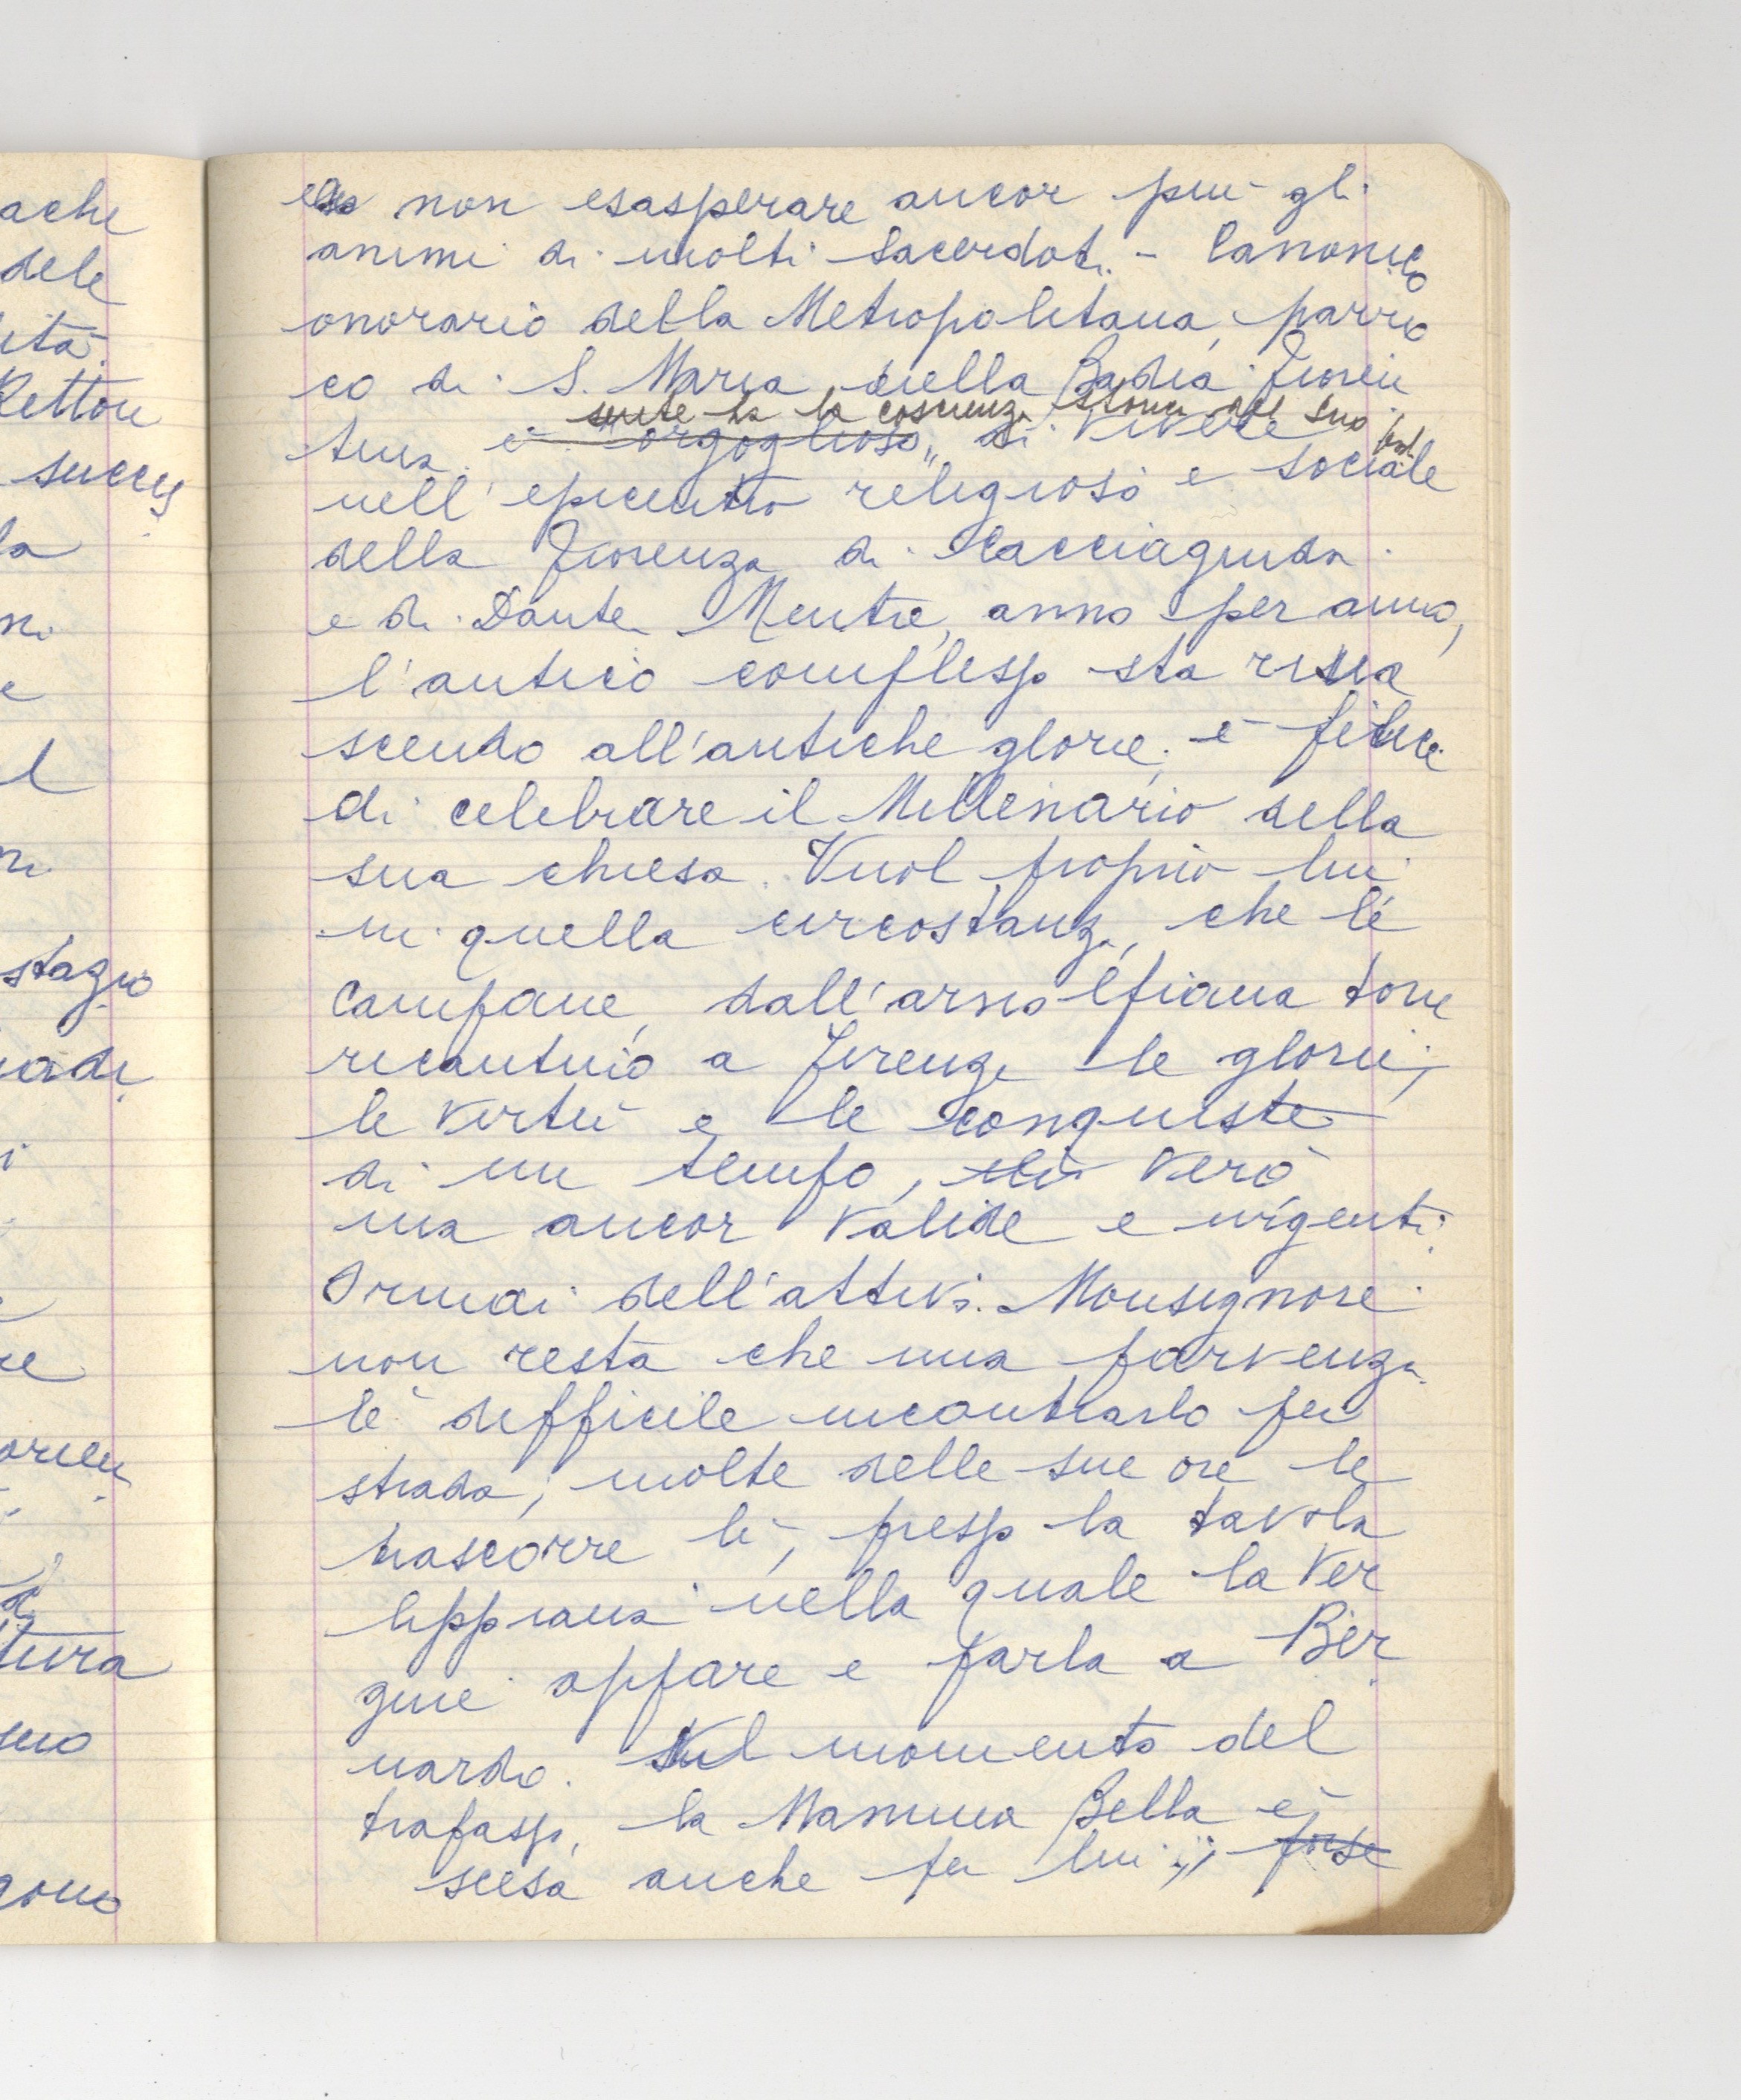 non esasperare ancor più gli
animi di molti sacerdoti. - Canonico
onorario della Metropolitana, parro
co di S. Maria nella Badia Fioren
sente ha la coscienza storica del suo
tina è "orgoglioso" di vivere
nell'epicentro religioso e sociale
della Fiorenza di Cacciaguida
e di Dante. Mentre, anno per anno,
l'antico complesso sta rina
scendo all'antiche glorie; è felice
di celebrare il Millenario della
sua chiesa. Vuol proprio lui
in quella circostanza, che le
campane, dall'arnolfiana torre
ricantino a Firenze le glorie,
le virtù e le conquiste
di un tempo, vero
ma ancor valide e urgenti.
Ormai dell'attivo Monsignore
non resta che una parvenza
è difficile incontrarlo per
strada; molte delle sue ore le
trascorre lì, presso la tavola
lippiana nella quale la Ver
gine appare e parla a Ber
nardo. Nel momento del
trapasso, la Mamma Bella è
scesa anche per lui; forse
ache
dele
ità
Rettore
success
la
ni
e
l
ni
stagio
adi
i
re
tura
suo
gono